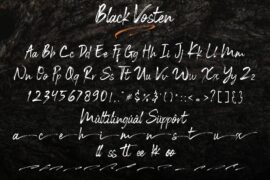 Black Vosten
Aa Bb Cc Dd Ee Ff Gg Hh Ii Jj Kk Ll Mm
Nn Oo Pp Qq Rr Ss Tt Uu Vv Ww Xx Yy Zz
Multilingual Support
a c e h i m n s t u x